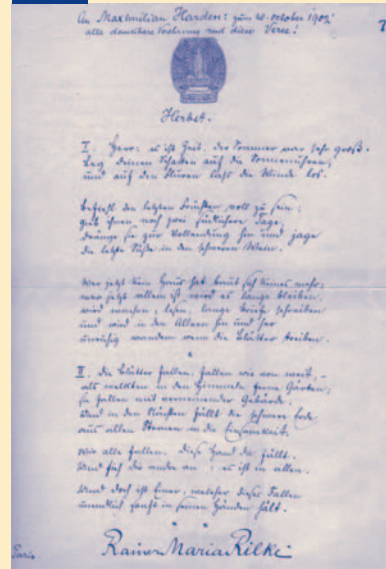 An Maximilian Harden: zum 20. October 1902:
alle dankbare und diese Verse!
Herbst.
I. Herr: es ist Zeit. Der Sommer war sehr groß.
Leg deinen Schatten auf die Sonnenuhren,
und auf den Fluren laß die Winde los.
Befiehl den letzten Früchten voll zu sein;
gieb ihnen noch zwei südlichere Tage,
dränge sie zur Vollendung hin und jage
die letzte Süße in den schweren Wein.
Wer jetzt kein Haus hat, baut sich keines mehr;
wer jetzt allein ist, wird es lange bleiben,
wird wachen, lesen, lange Briefe schreiben
und wird in den Alleen hin und her
unruhig wandern wenn die Blätter treiben.
II. Die Blätter fallen, fallen wie von weit,-
als welkten in den Himmeln ferne Gärten;
sie fallen mit verneinender Gebärde.
Und in den Nächten fällt die schwere Erde
aus allen Sternen in die Einsamkeit.
Wir alle fallen. Diese Hand da fällt.
Und sieh dir andre an: es ist in allen.
Und doch ist Einer, welcher dieses Fallen
unendlich sanft in seinen Händen hält.
Rainer Maria Rilke
Paris.